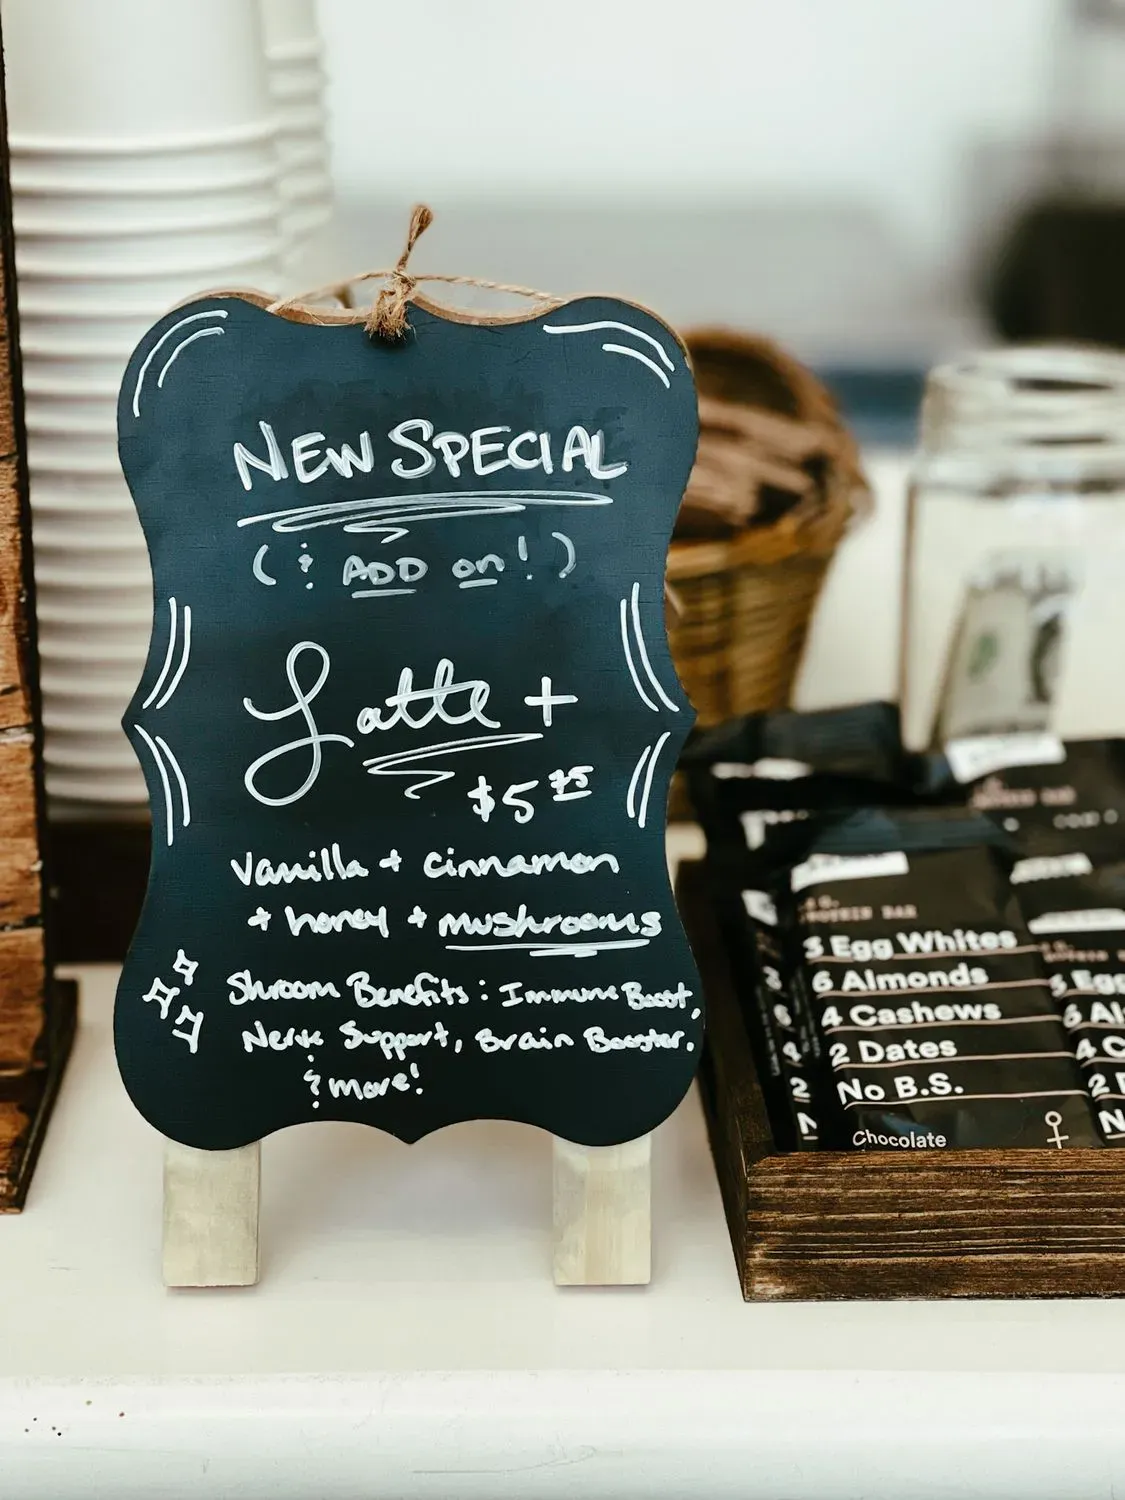 NEW SPECIAL
(& ADD on!)
Latte +
$5 75
Vanilla + cinnamon
+ honey + mushrooms
Shroom Benefits: Immune Boost,
Nerve Support, Brain Booster,
& more!
PROTEIN BAR
3 Egg Whites
6 Almonds
4 Cashews
2 Dates
No B.S.
Chocolate